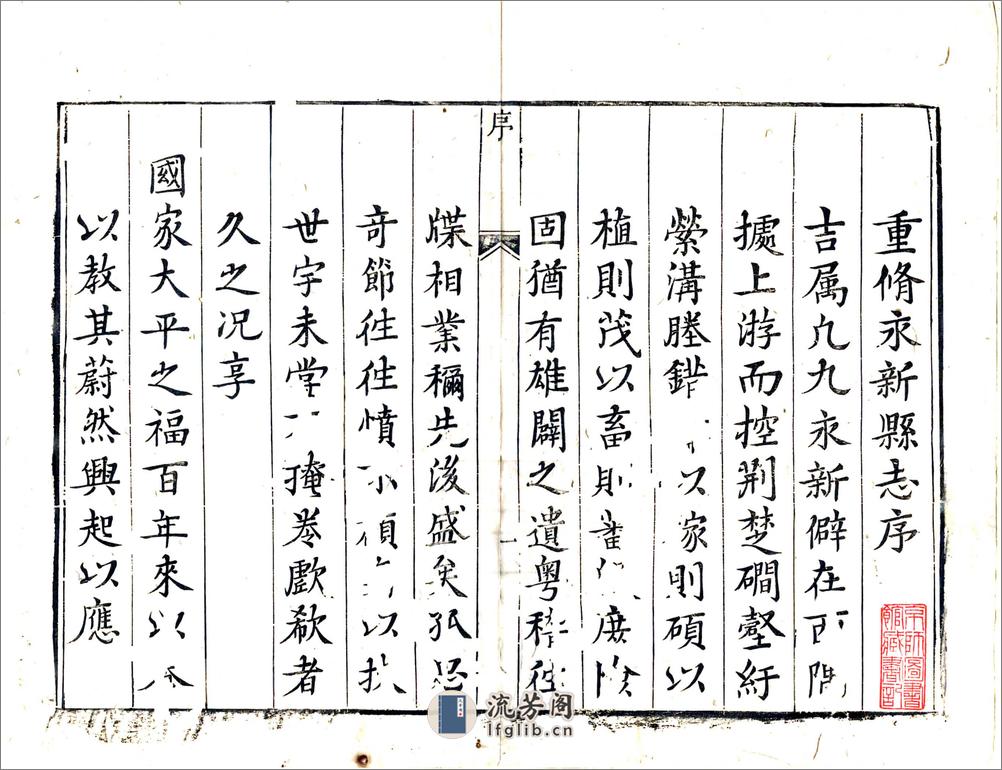 重脩永新縣志序
吉属凢九永新僻在西隅
據上游而控荆楚磵壑紆
縈溝塍錯以家則碩以
植則茂以畜則蕃庶
固猶有雄闢之遺粤稽往
序
一
牒相業稱先後盛矣孤忠
奇節徃徃憤以扶
世字未掌掩卷歔欷者
久之况享
國家大平之福百年來以
以教其蔚然興起以應
京師圖書館藏書記
流芳阁
lfglib.cn